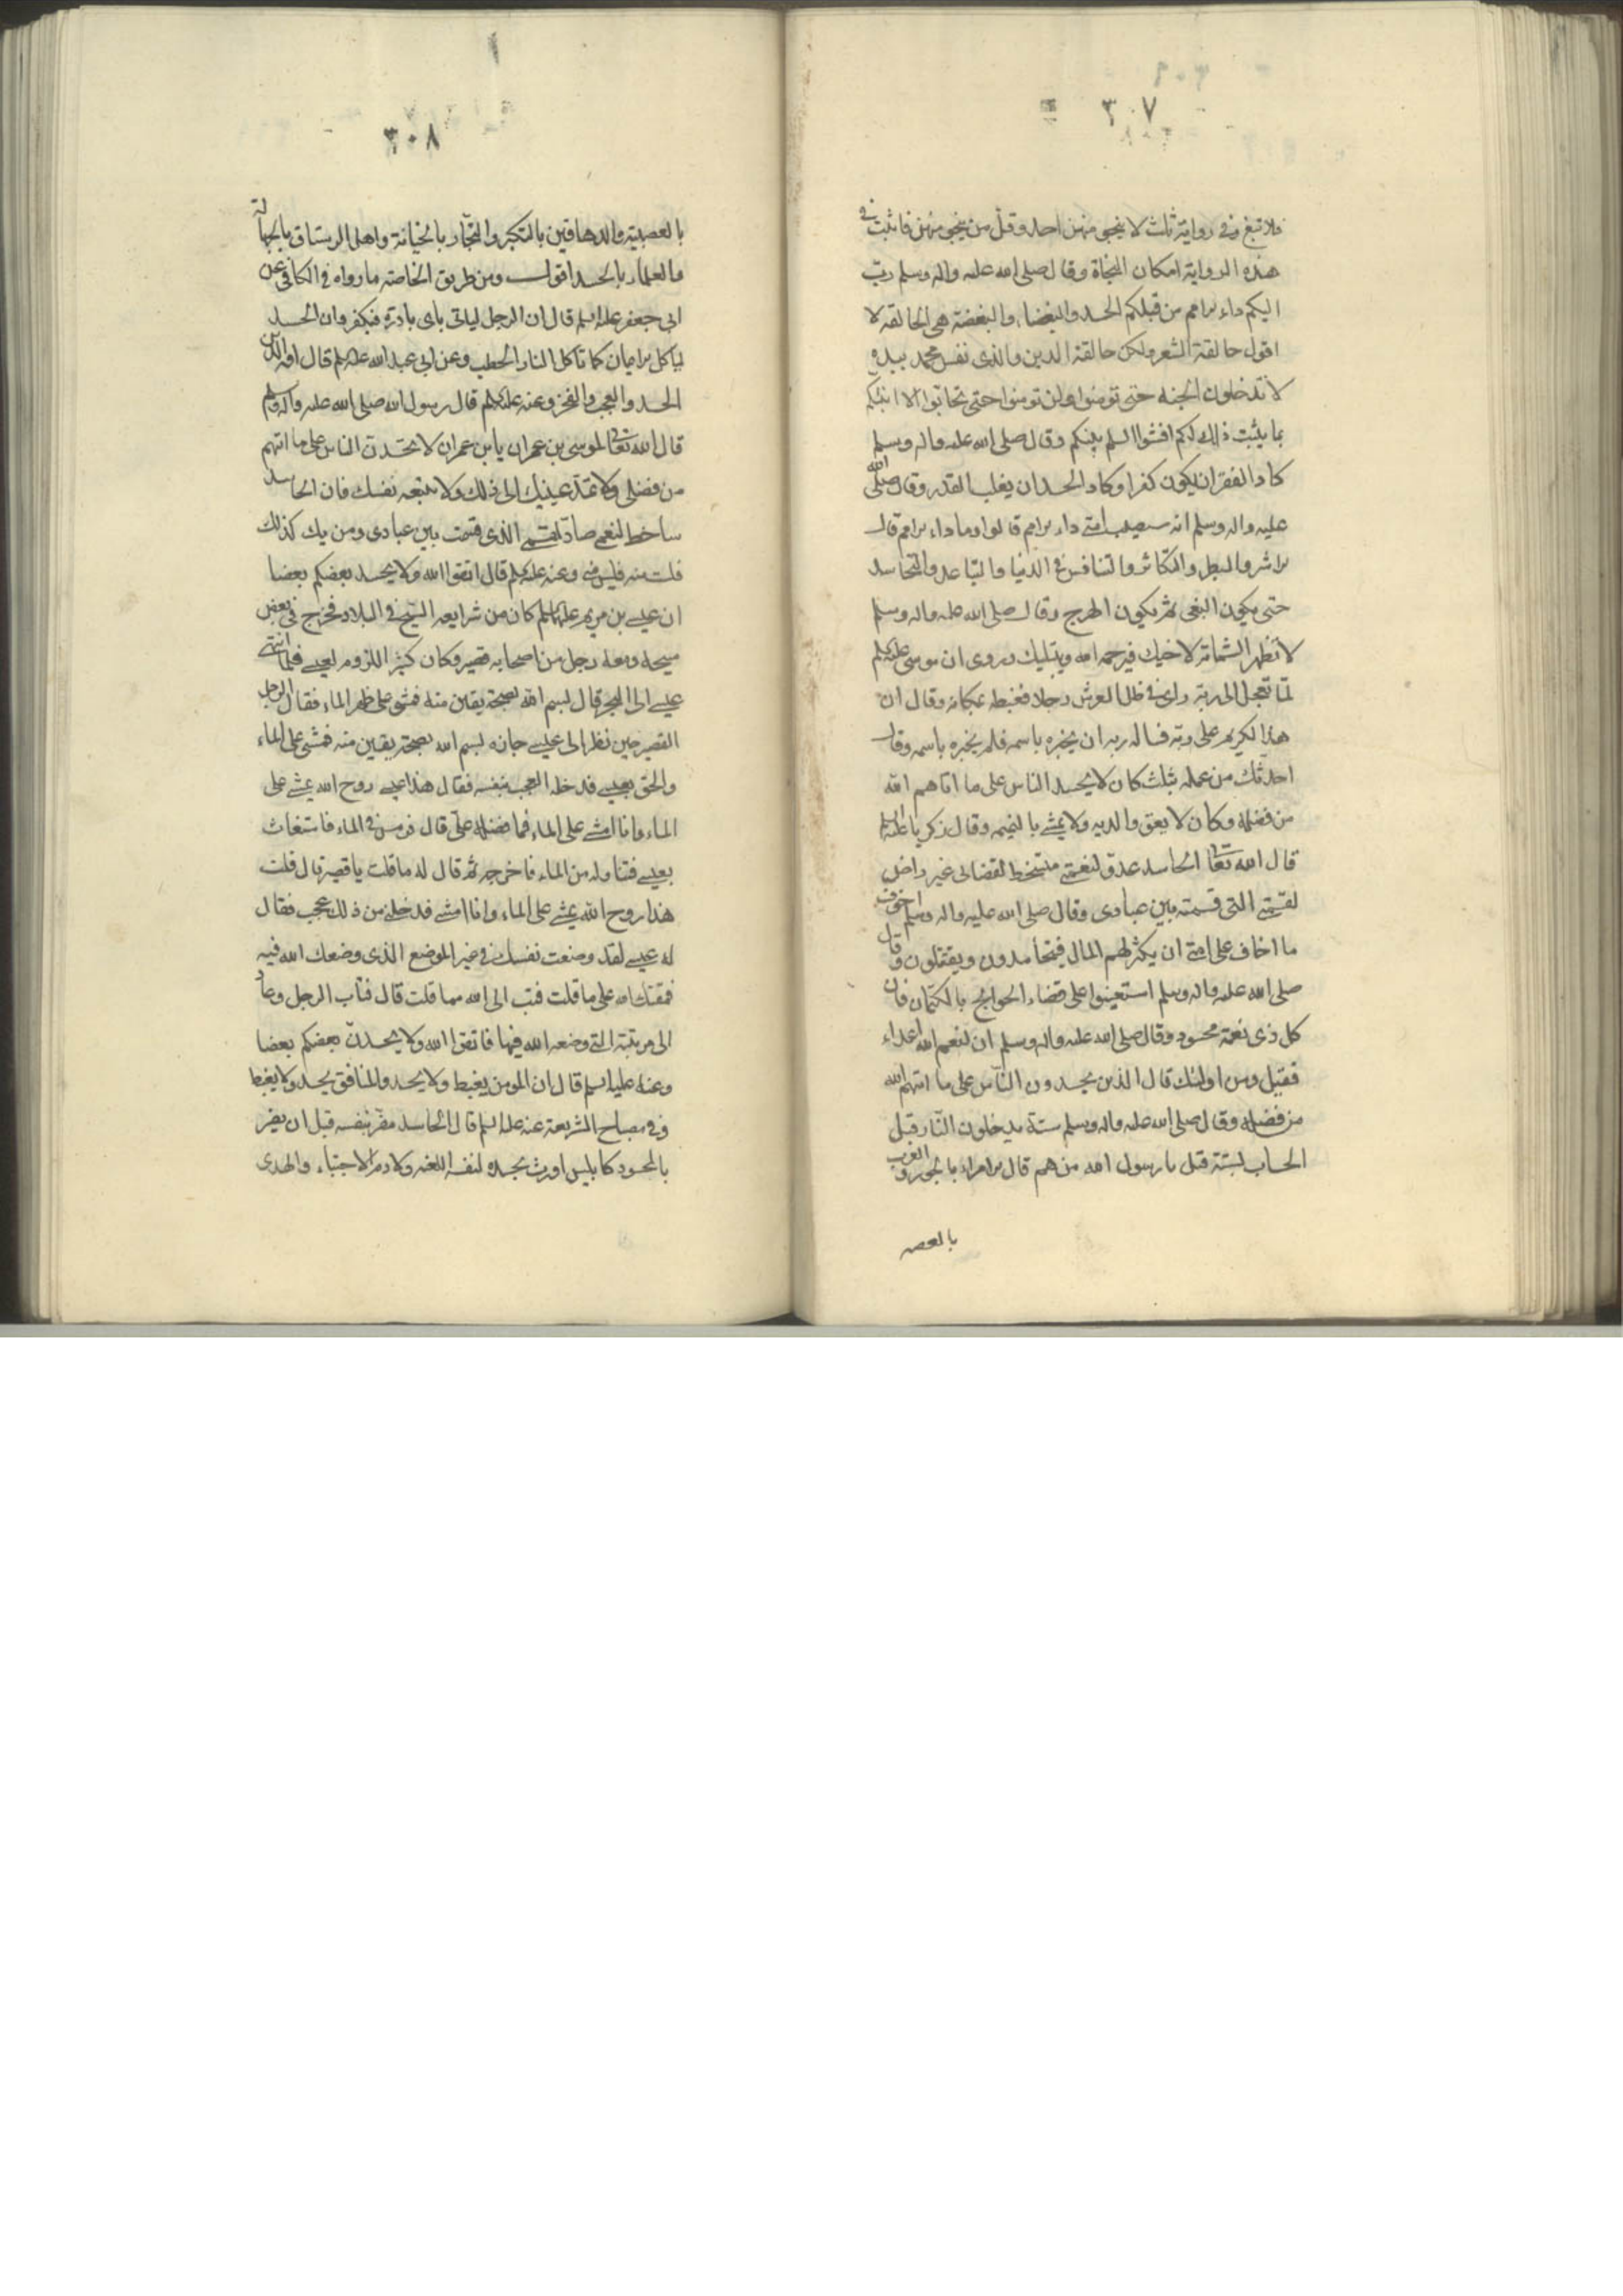 ٣٠٧
فلا تبغ وفى رواية ثلث لا ينجى منهن احد وقل من ينجى منهن فاثبت فى
هذه الرواية امكان النجاة وقال صلى الله عليه واله وسلم دب
اليكم داء الامم من قبلكم الحسد والبغضاء والبغضة هى الحالقة لا
اقول حالقة الشعر ولكن حالقة الدين والذى نفس محمد بيده
لا تدخلون الجنة حتى تومنوا ولن تومنوا حتى تحابوا الا انبئكم
بما يثبت ذلك لكم افشوا السلم بينكم وقال صلى الله عليه واله وسلم
كاد الفقر ان يكون كفرا وكاد الحسد ان يغلب القدر وقال صلى الله
عليه واله وسلم انه سيصيب امتى داء الامم قالوا وما داء الامم قال
الاشر والبطر والتكاثر والتنافس فى الدنيا والتباعد والتحاسد
حتى يكون البغى ثم يكون الهرج وقال صلى الله عليه واله وسلم
لا تظهر الشماتة لاخيك فيرحمه الله ويبتليك وروى ان موسى عليه السلم
لما تعجل الى ربه راى فى ظل العرش رجلا فغبطه بمكانه وقال ان
هذا لكريم على ربه فسال ربه ان يخبره باسمه فلم يخبره باسمه وقال
احدثك من عمله بثلث كان لا يحسد الناس على ما اتاهم الله
من فضله وكان لا يعق والديه ولا يمشى بالنميمه وقال زكريا عليه السلم
قال الله تعالى الحاسد عدو لنعمتى متسخط لقضائى غير راض
لقسمتى التى قسمته بين عبادى وقال صلى الله عليه واله وسلم اخوف
ما اخاف على امتى ان يكثر لهم المال فيتحاسدون ويقتتلون وقال
صلى الله عليه واله وسلم استعينوا على قضاء الحوائج بالكتمان فان
كل ذى نعمة محسود وقال صلى الله عليه واله وسلم ان لنعم الله اعداء
فقيل ومن اولئك قال الذين يحسدون الناس على ما اتيهم الله
من فضله وقال صلى الله عليه واله وسلم ستة يدخلون النار قبل
الحساب بستة قيل يا رسول الله من هم قال الامراء بالجور والعرب
بالعصبية
٣٠٨
بالعصبية والدهاقين بالتكبر والتجار بالخيانة واهل الرستاق بالجهالة
والعلماء بالحسد اقول ومن طريق الخاصة ما رواه فى الكافى عن
ابى جعفر عليه السلم قال ان الرجل لياتى باى بادرة فيكفر وان الحسد
لياكل الايمان كما تاكل النار الحطب وعن ابى عبد الله عليه السلم قال افة الدين
الحسد والعجب والفخر وعنه عليه السلم قال رسول الله صلى الله عليه واله وسلم
قال الله تعالى لموسى بن عمران يابن عمران لا تحسدن الناس على ما اتيهم
من فضلى ولا تمدن عينيك الى ذلك ولا تتبعه نفسك فان الحاسد
ساخط لنعمى صاد لقسمى الذى قسمت بين عبادى ومن يك كذلك
فلست منه فليس منى وعنه عليه السلم قال اتقوا الله ولا يحسد بعضكم بعضا
ان عيسى بن مريم عليهما السلم كان من شرايعه السيح فى البلاد فخرج فى بعض
سيحه ومعه رجل من اصحابه قصير وكان كثير اللزوم لعيسى فلما انتهى
عيسى الى البحر قال بسم الله بصحة يقين منه فمشى على ظهر الماء فقال الرجل
القصير حين نظر الى عيسى جازه بسم الله بصحة يقين منه فمشى على الماء
ولحق بعيسى فدخله العجب بنفسه فقال هذا عيسى روح الله يمشى على
الماء وانا امشى على الماء فما فضله على قال فرمس فى الماء فاستغاث
بعيسى فتناوله من الماء فاخرجه ثم قال له ما قلت يا قصير قال قلت
هذا روح الله يمشى على الماء وانا امشى فدخلنى من ذلك عجب فقال
له عيسى لقد وضعت نفسك فى غير الموضع الذى وضعك الله فيه
فمقتك الله على ما قلت فتب الى الله مما قلت قال فتاب الرجل وعاد
الى مرتبته التى وضعه الله فيها فاتقوا الله ولا يحسدن بعضكم بعضا
وعنه عليه السلم قال ان المومن يغبط ولا يحسد والمنافق يحسد ولا يغبط
وفى مصباح الشريعة عنه عليه السلم قال الحاسد مضر بنفسه قبل ان يضر
بالمحسود كابليس اورث بحسده لنفسه اللعنه ولادم الاجتباء والهدى